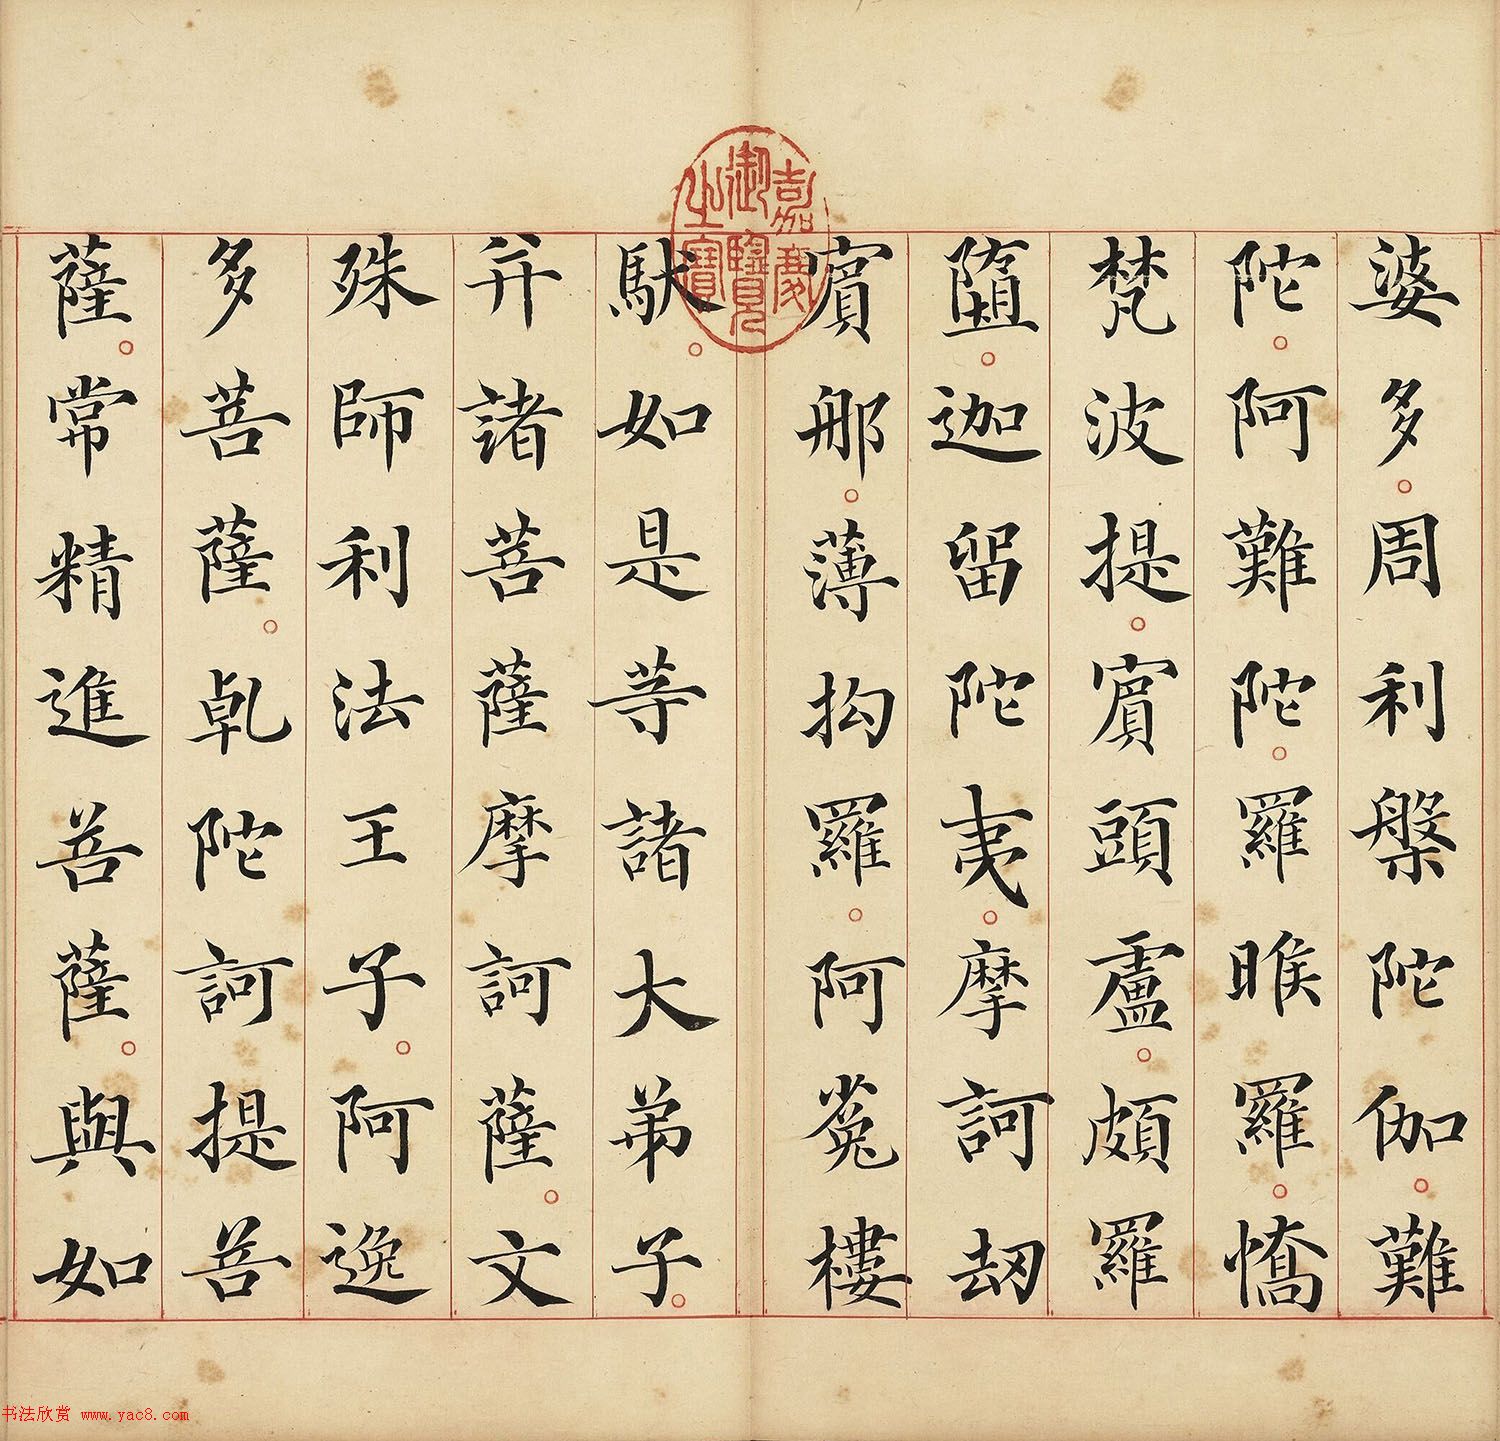 婆多。周利槃陀伽。難
陀。阿難陀。羅睺羅。憍
梵波提。賓頭盧。頗羅
墮。迦留陀夷。摩訶劫
賓那。薄拘羅。阿㝹樓
馱。如是等諸大弟子。
并諸菩薩摩訶薩。文
殊師利法王子。阿逸
多菩薩。乹陀訶提菩
薩。常精進菩薩。與如
嘉慶御覽之寶
书法欣赏 www.yac8.com